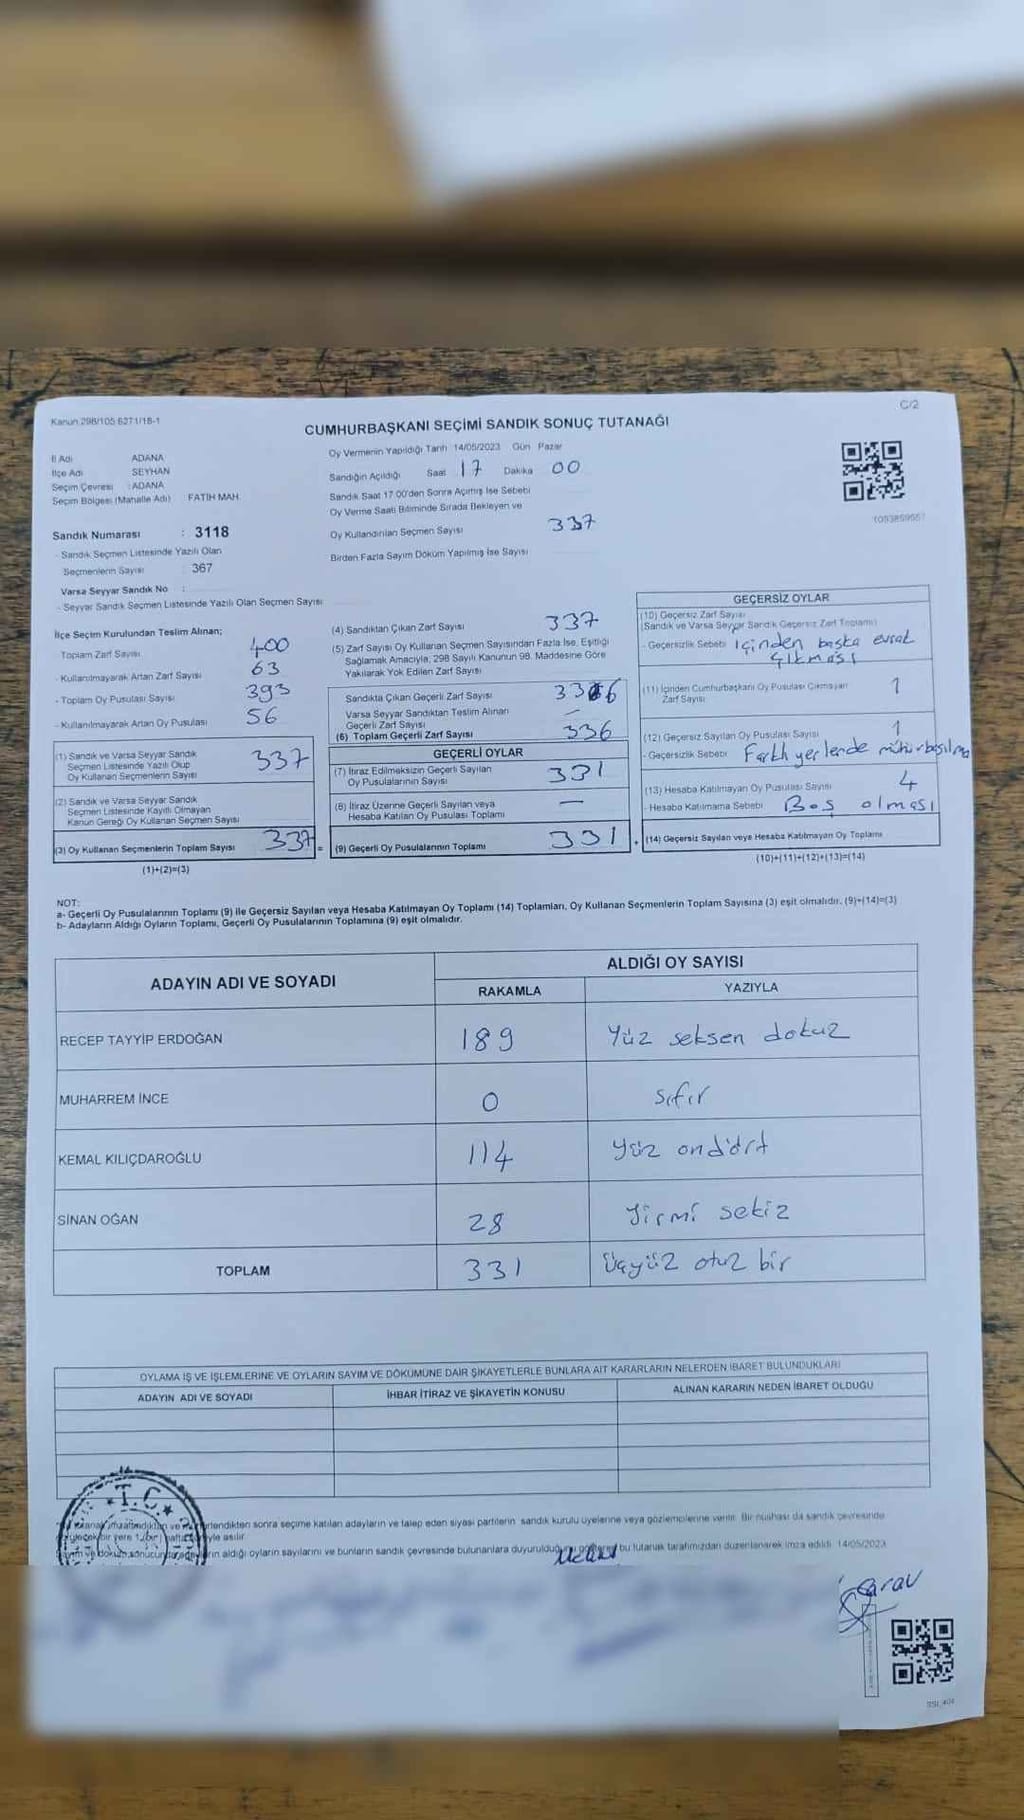 Kanun 298/105 6271/18-1
C/2
CUMHURBAŞKANI SEÇİMİ SANDIK SONUÇ TUTANAĞI
İl Adı ADANA
İlçe Adı SEYHAN
Seçim Çevresi : ADANA
Seçim Bölgesi (Mahalle Adı) FATİH MAH.
Sandık Numarası : 3118
- Sandık Seçmen Listesinde Yazılı Olan
Seçmenlerin Sayısı : 367
Varsa Seyyar Sandık No :
- Seyyar Sandık Seçmen Listesinde Yazılı Olan Seçmen Sayısı
Oy Vermenin Yapıldığı Tarih 14/05/2023 Gün Pazar
Sandığın Açıldığı Saat 17 Dakika 00
Sandık Saat 17.00'den Sonra Açılmış İse Sebebi
Oy Verme Saati Bitiminde Sırada Bekleyen ve
Oy Kullandırılan Seçmen Sayısı 337
Birden Fazla Sayım Döküm Yapılmış İse Sayısı
1053859557
İlçe Seçim Kurulundan Teslim Alınan;
Toplam Zarf Sayısı 400
- Kullanılmayarak Artan Zarf Sayısı 63
- Toplam Oy Pusulası Sayısı 393
- Kullanılmayarak Artan Oy Pusulası 56
(1) Sandık ve Varsa Seyyar Sandık
Seçmen Listesinde Yazılı Olup
Oy Kullanan Seçmenlerin Sayısı 337
(2) Sandık ve Varsa Seyyar Sandık
Seçmen Listesinde Kayıtlı Olmayan
Kanun Gereği Oy Kullanan Seçmen Sayısı
(3) Oy Kullanan Seçmenlerin Toplam Sayısı 337 =
(1)+(2)=(3)
(4) Sandıktan Çıkan Zarf Sayısı 337
(5) Zarf Sayısı Oy Kullanan Seçmen Sayısından Fazla İse, Eşitliği
Sağlamak Amacıyla; 298 Sayılı Kanunun 98. Maddesine Göre
Yakılarak Yok Edilen Zarf Sayısı
Sandıkta Çıkan Geçerli Zarf Sayısı 336
Varsa Seyyar Sandıktan Teslim Alınan
Geçerli Zarf Sayısı –
(6) Toplam Geçerli Zarf Sayısı 336
GEÇERLİ OYLAR
(7) İtiraz Edilmeksizin Geçerli Sayılan
Oy Pusulalarının Sayısı 331
(8) İtiraz Üzerine Geçerli Sayılan veya
Hesaba Katılan Oy Pusulası Toplamı –
(9) Geçerli Oy Pusulalarının Toplamı 331 +
GEÇERSİZ OYLAR
(10) Geçersiz Zarf Sayısı
(Sandık ve Varsa Seyyar Sandık Geçersiz Zarf Toplamı)
- Geçersizlik Sebebi içinden başka evrak
çıkması
(11) İçinden Cumhurbaşkanı Oy Pusulası Çıkmayan
Zarf Sayısı 1
(12) Geçersiz Sayılan Oy Pusulası Sayısı 1
- Geçersizlik Sebebi Farklı yerlerde mühür basılma
(13) Hesaba Katılmayan Oy Pusulası Sayısı 4
- Hesaba Katılmama Sebebi Boş olması
(14) Geçersiz Sayılan veya Hesaba Katılmayan Oy Toplamı
(10)+(11)+(12)+(13)=(14)
NOT:
a- Geçerli Oy Pusulalarının Toplamı (9) ile Geçersiz Sayılan veya Hesaba Katılmayan Oy Toplamı (14) Toplamları, Oy Kullanan Seçmenlerin Toplam Sayısına (3) eşit olmalıdır. (9)+(14)=(3)
b- Adayların Aldığı Oyların Toplamı, Geçerli Oy Pusulalarının Toplamına (9) eşit olmalıdır.
ADAYIN ADI VE SOYADI
ALDIĞI OY SAYISI
RAKAMLA YAZIYLA
RECEP TAYYİP ERDOĞAN 189 Yüz seksen dokuz
MUHARREM İNCE 0 sıfır
KEMAL KILIÇDAROĞLU 114 Yüz ondört
SİNAN OĞAN 28 Yirmi sekiz
TOPLAM 331 Üçyüz otuz bir
OYLAMA İŞ VE İŞLEMLERİNE VE OYLARIN SAYIM VE DÖKÜMÜNE DAİR ŞİKAYETLERLE BUNLARA AİT KARARLARIN NELERDEN İBARET BULUNDUKLARI
ADAYIN ADI VE SOYADI İHBAR İTİRAZ VE ŞİKAYETİN KONUSU ALINAN KARARIN NEDEN İBARET OLDUĞU
T.C.
sonra seçime katılan adayların ve talep eden siyasi partilerin sandık kurulu üyelerine veya gözlemcilerine verilir. Bir nüshası da sandık çevresinde
asılır.
aldığı oyların sayılarını ve bunların sandık çevresinde bulunanlara duyurulduğunu bu tutanak tarafımızdan düzenlenerek imza edildi. 14/05/2023